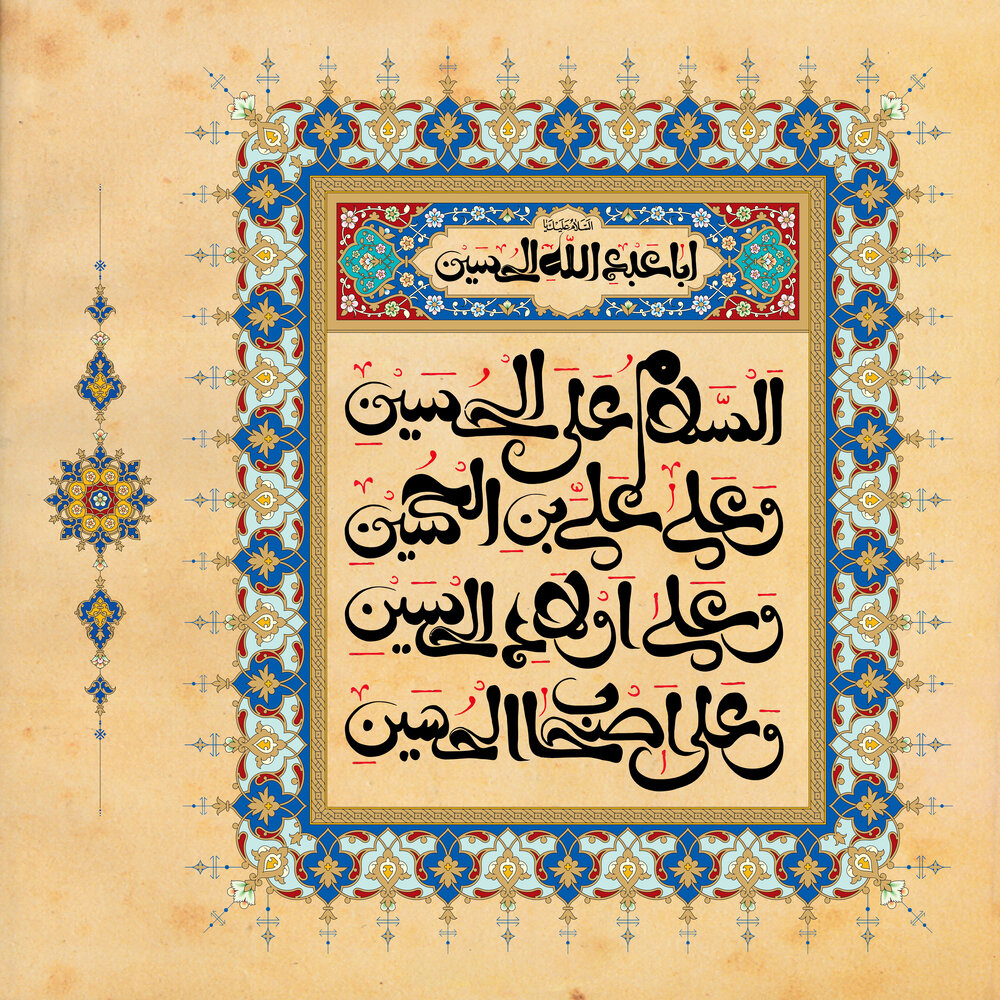 السلام عليك يا
ابا عبد الله الحسين
السلام على الحسين
وعلى علي بن الحسين
وعلى اولاد الحسين
وعلى اصحاب الحسين